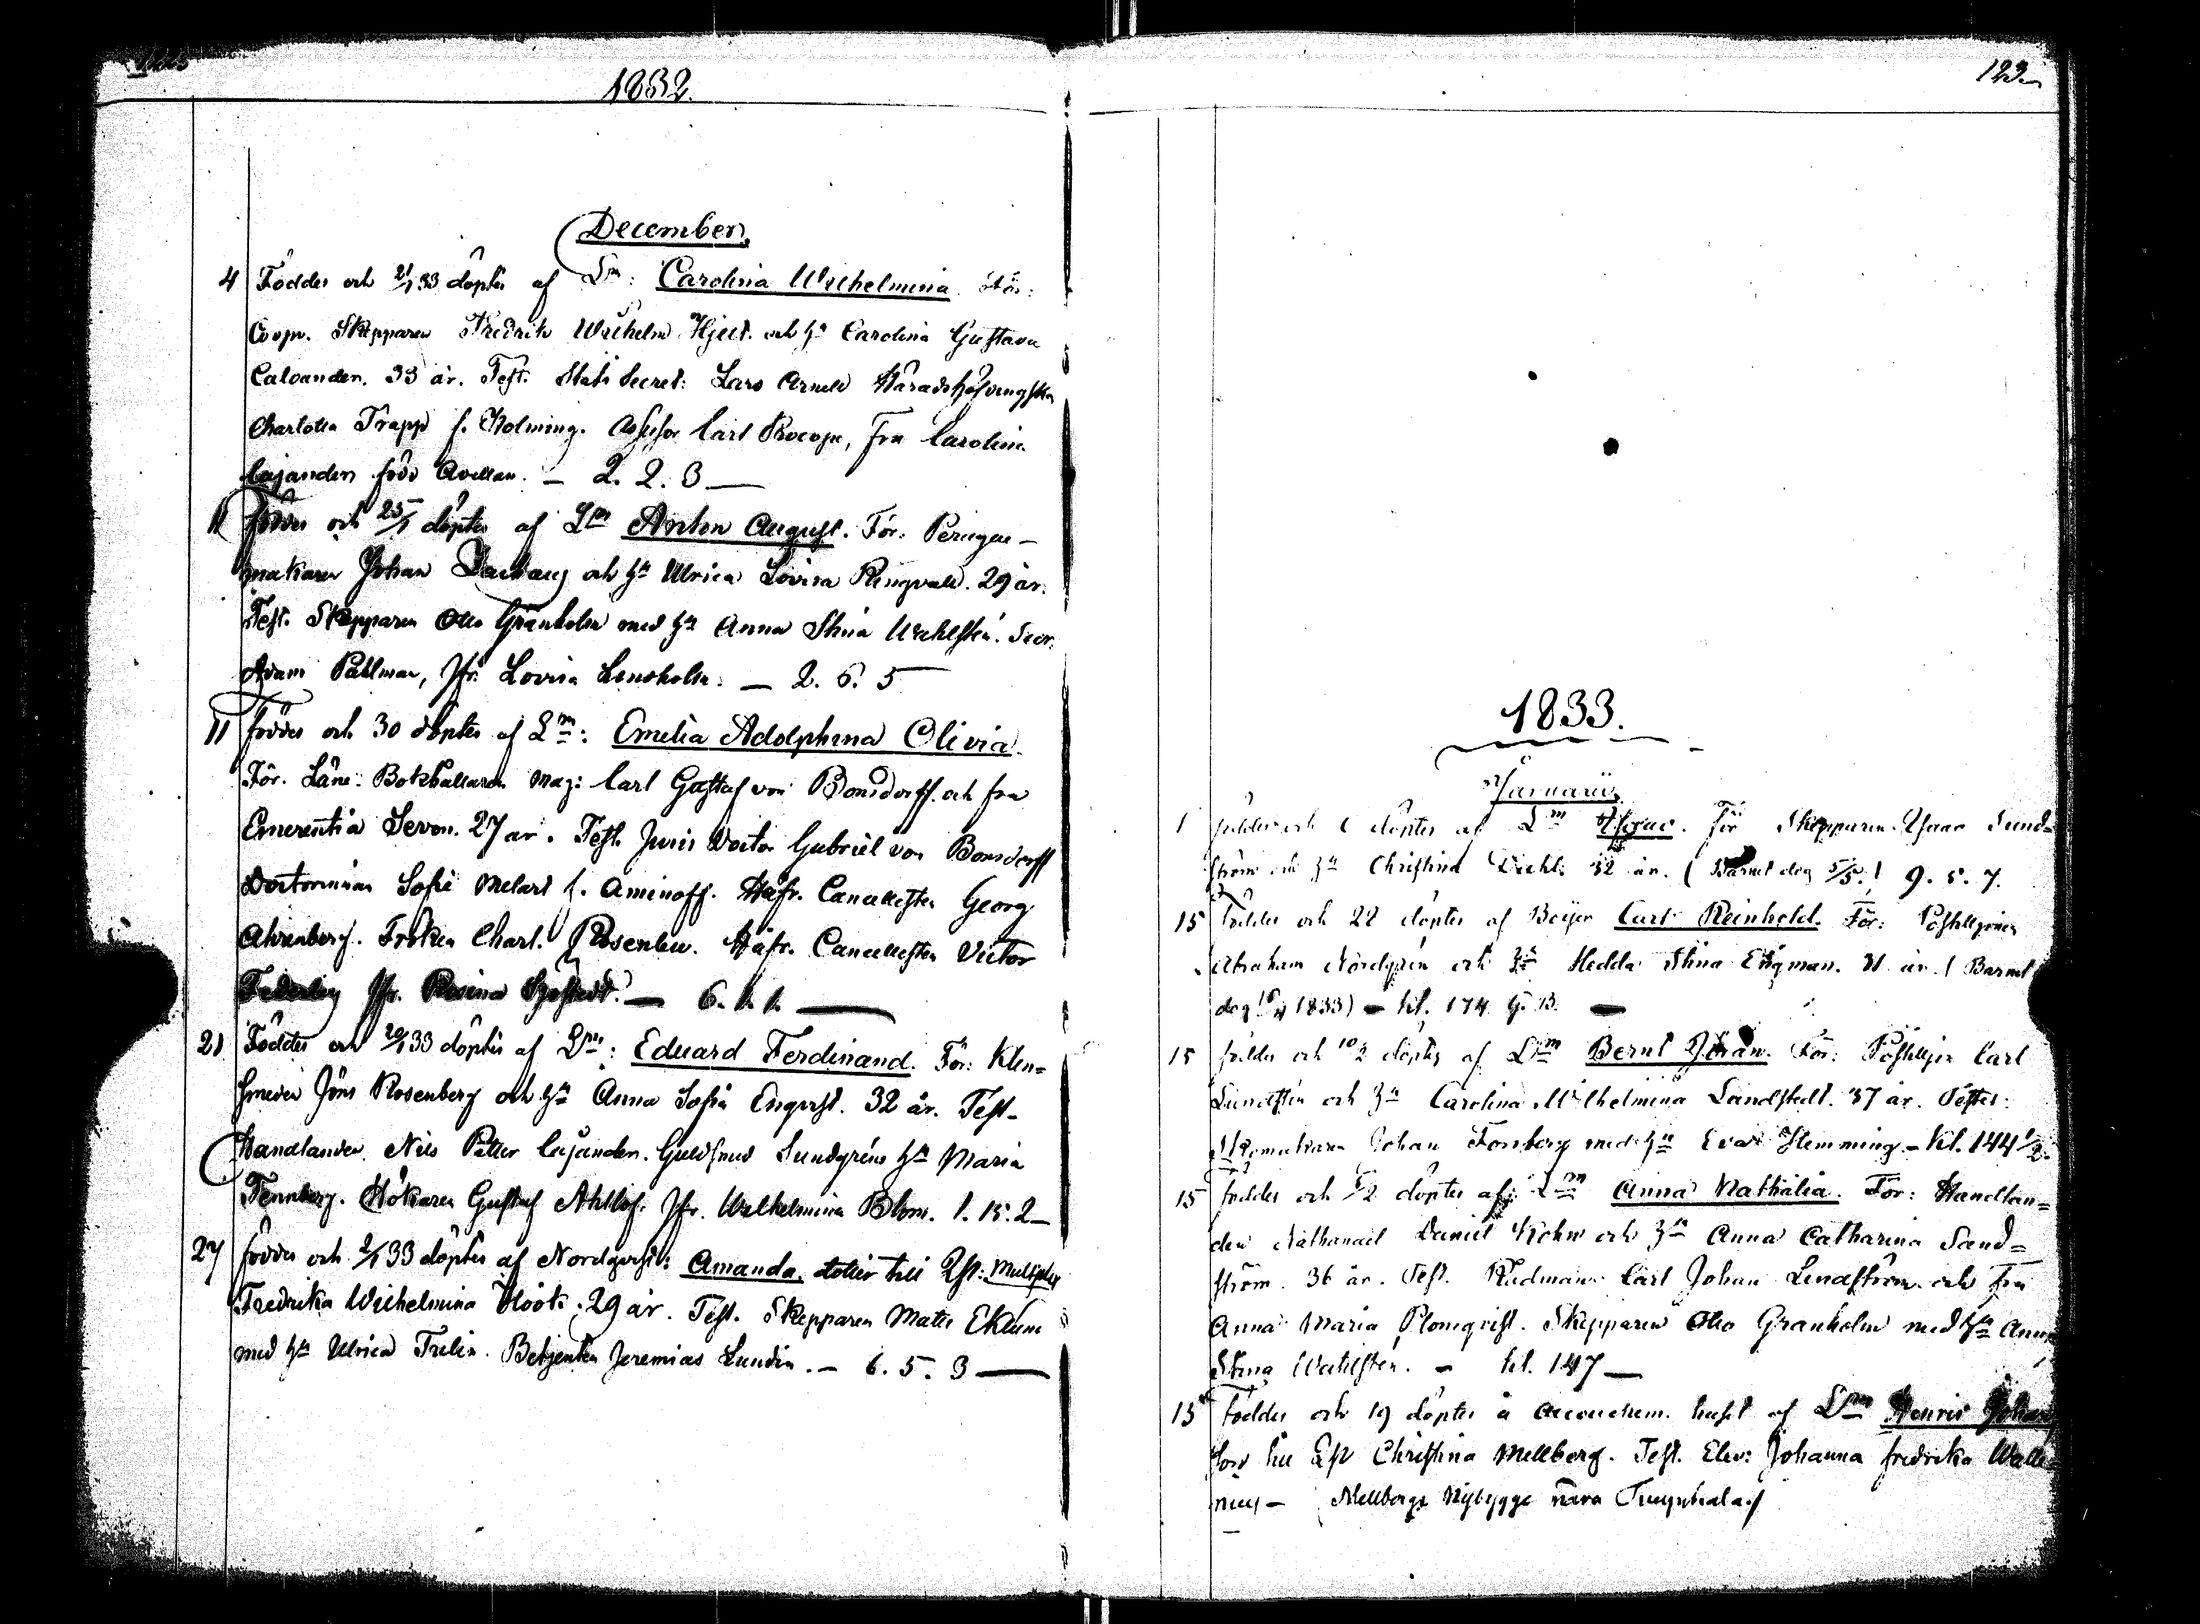 1832.
December,
4 Föddes och 21/1 33 döptes af Lm: Carolina Wilhelmina. För:
Coopv. Skepparen Fredrik Wilhelm Hjelt. och h. Carolina Gustava
Calvander. 33 år. Test. Stats Secret: Lars Arnell Häradshöfdingskan
Charlotta Trapp f. Holming. Assessor Carl Procope, Fru Carolina
Cajander född Avellan. – 2. 2. 3 —
11 föddes och 25/1 döptes af Lm Anton August. För: Peruque-
makaren Johan och hu Ulrica Lovisa Ringvall. 29 år.
Test. Skepparen Otto Granholm med hu Anna Stina Wahlsten.
Adam Pahlman, Jfr. Lovisa – 2. 6. 5
11 föddes och 30 döptes af Lm: Emelia Adolphina Olivia.
För. Läns: Bokhållaren Mag: Carl Gustaf von Bonsdorff. och fru
Emerentia Servon. 27 år. Test. Juris Doctor Gabriel von Bonsdorff
Doctorinnan Sofie Melart f. Aminoff. Håfr. Cancellisten Georg
Ahrenberg. Fröken Charl. Rosenlew. Håfr. Cancellisten Victor
Federley Jfr. Rosina – 6. 1. 1. —
21 Föddes och 20/1 33 döptes af Lm: Eduard Ferdinand. För: Klen=
smeden Jöns Rosenberg och hu Anna Sofia Enqvist. 32 år. Test-
Handlanden Nils Petter Cajander. Guldsmed Sundgréns hu Maria
Tennberg. Hökaren Gustaf Ahllöf. Jfr. Wilhelmina Blom. 1. 15. 2 –
27 föddes och 2/1 33 döptes af Nordqvist: Amanda, dotter till Qp:
Fredrika Wilhelmina Höök. 29 år. Test. Skepparen Mats Eklund
med hu Ulrica Trulin. Betjenten Jeremias Lundin. – 6. 5. 3 —
123.
1833.
Januarii,
1 föddes och 6 döptes af Lm Isaac. För Skepparen Isaac Sund=
ström och hu Christina 32 år. (Barnet dog 5/5.) 9. 5. 7.
15 Föddes och 22 döptes af Boijer Carl Reinhold. För: Postiljonen
Abraham Nordgrén och hu Hedda Stina Engman. 31 år. (Barnet
dog 1833) – kl. 174 G. B. —
15 föddes och 10/2 döptes af Lm Bernt Johan. För: Postiljon Carl
Lundstén och hu Carolina Wilhelmina Sandstedt. 37 år. Testes:
Skomakaren Johan Forsberg med hu Eva Hemming – kl. 144 1/2.
15 föddes och 5/2 döptes af: Lm Anna Nathalia. För: Handlan=
den Nathanael Daniel Kohn och hu Anna Catharina Sand=
ström. 36 år. Test. Rådman Carl Johan Lindström och Fru
Anna Maria Plomqvist. Skepparen Otto Granholm med hu Anna
Stina Wahlsten. – kl. 147 —
15 Föddes och 19 döptes å Accouchem. huset af Lm Henric Johan
son till Qp Christina Mellberg. Test. Elev: Johanna fredrika Walle
nius – Mellbergs Nybygge nära